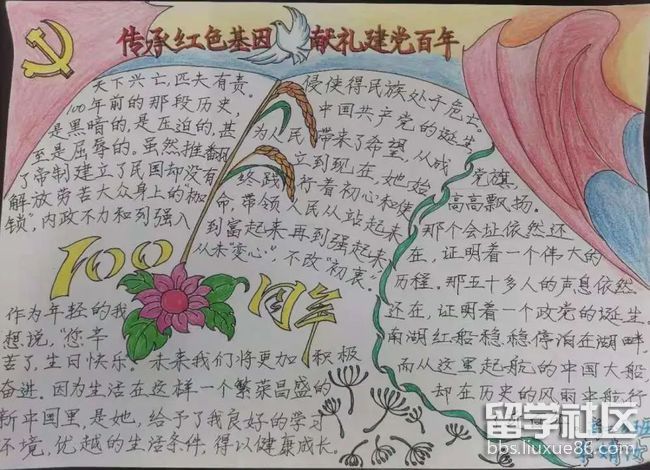 传承红色基因 献礼建党百年
天下兴亡,匹夫有责。
100年前的那段历史,
是黑暗的,是压迫的,甚
至是屈辱的。虽然推翻
了帝制建立了民国却没有
解放劳苦大众身上的“枷
锁”,内政不力和列强入
侵使得民族处于危亡。
中国共产党的诞生
为人民带来了希望,从成
立到现在,她始
终践行着初心和使
命,带领人民从站起来
到富起来再到强起来
从未“变心”,不改“初衷”!
100
周年
作为年轻的我
想说,“您辛
苦了,生日快乐。”未来我们将更加积极
奋进。因为生活在这样一个繁荣昌盛的
新中国里,是她,给予了我良好的学习
环境,优越的生活条件,得以健康成长。
党旗,
高高飘扬。
那个会址依然还
在,证明着一个伟大的
历程。那五十多人的声息依然
还在,证明着一个政党的诞生。
南湖红船稳稳停泊在湖畔,
而从这里起航的中国大船
却在历史的风雨中航行
班
留学社区
bbs.liuxue86.com